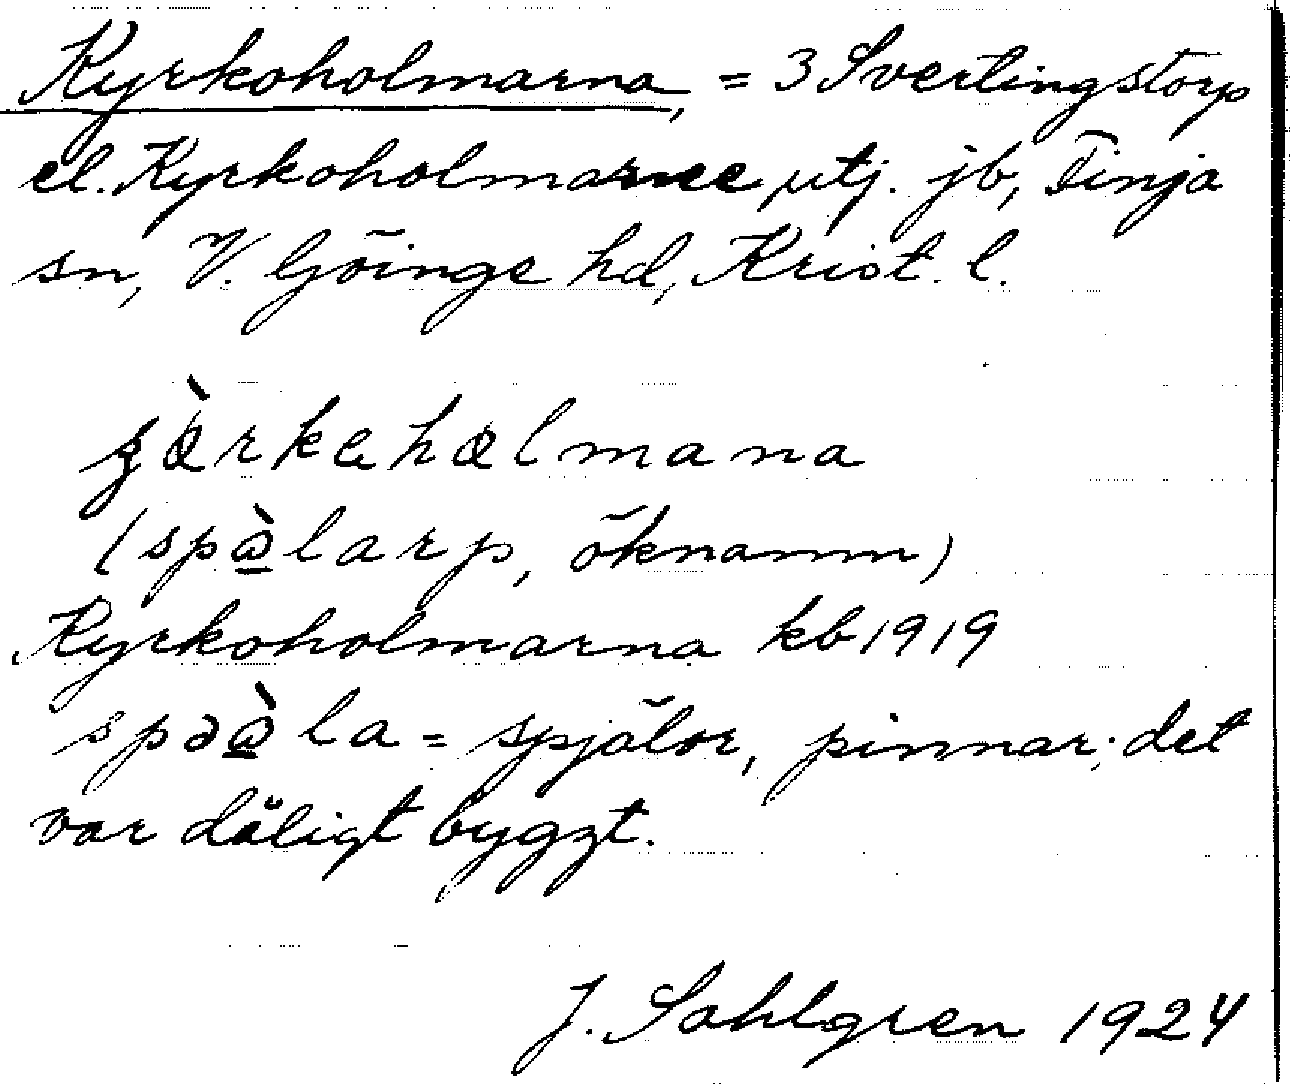 Kyrkoholmarna, = 3 Svertingstorp
el. Kyrkoholmarne utj. jb, Tinja
sn, V. Göinge hd, Krist. l.
(spàlarp, öknamn)
Kyrkoholmarna kb 1919
= spjälor, pinnar; det
var dåligt byggt.
J. Sahlgren 1924